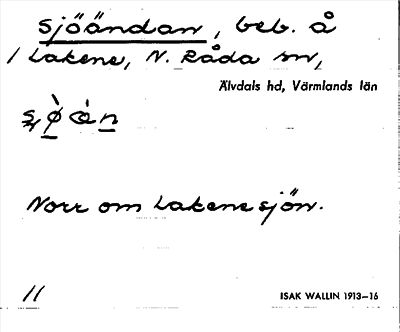 Sjöändan, beb. å
/ Lakene, N. Råda sn,
Älvdals hd, Värmlands län
Norr om Lakenesjön.
11
ISAK WALLIN 1913–16